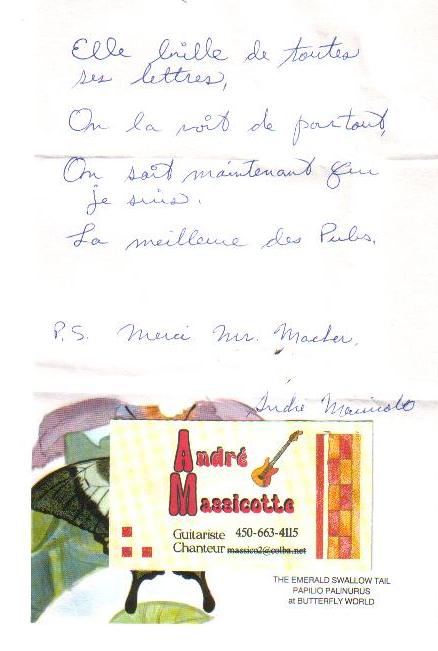 Elle brille de toutes
ses lettres,
On la voit de partout,
On sait maintenant qui
je suis.
La meilleure des Pubs.
P.S. Merci Mr. Macher.
André Massicotte
André
Massicotte
Guitariste 450-663-4115
Chanteur massico2@colba.net
THE EMERALD SWALLOW TAIL
PAPILIO PALINURUS
at BUTTERFLY WORLD